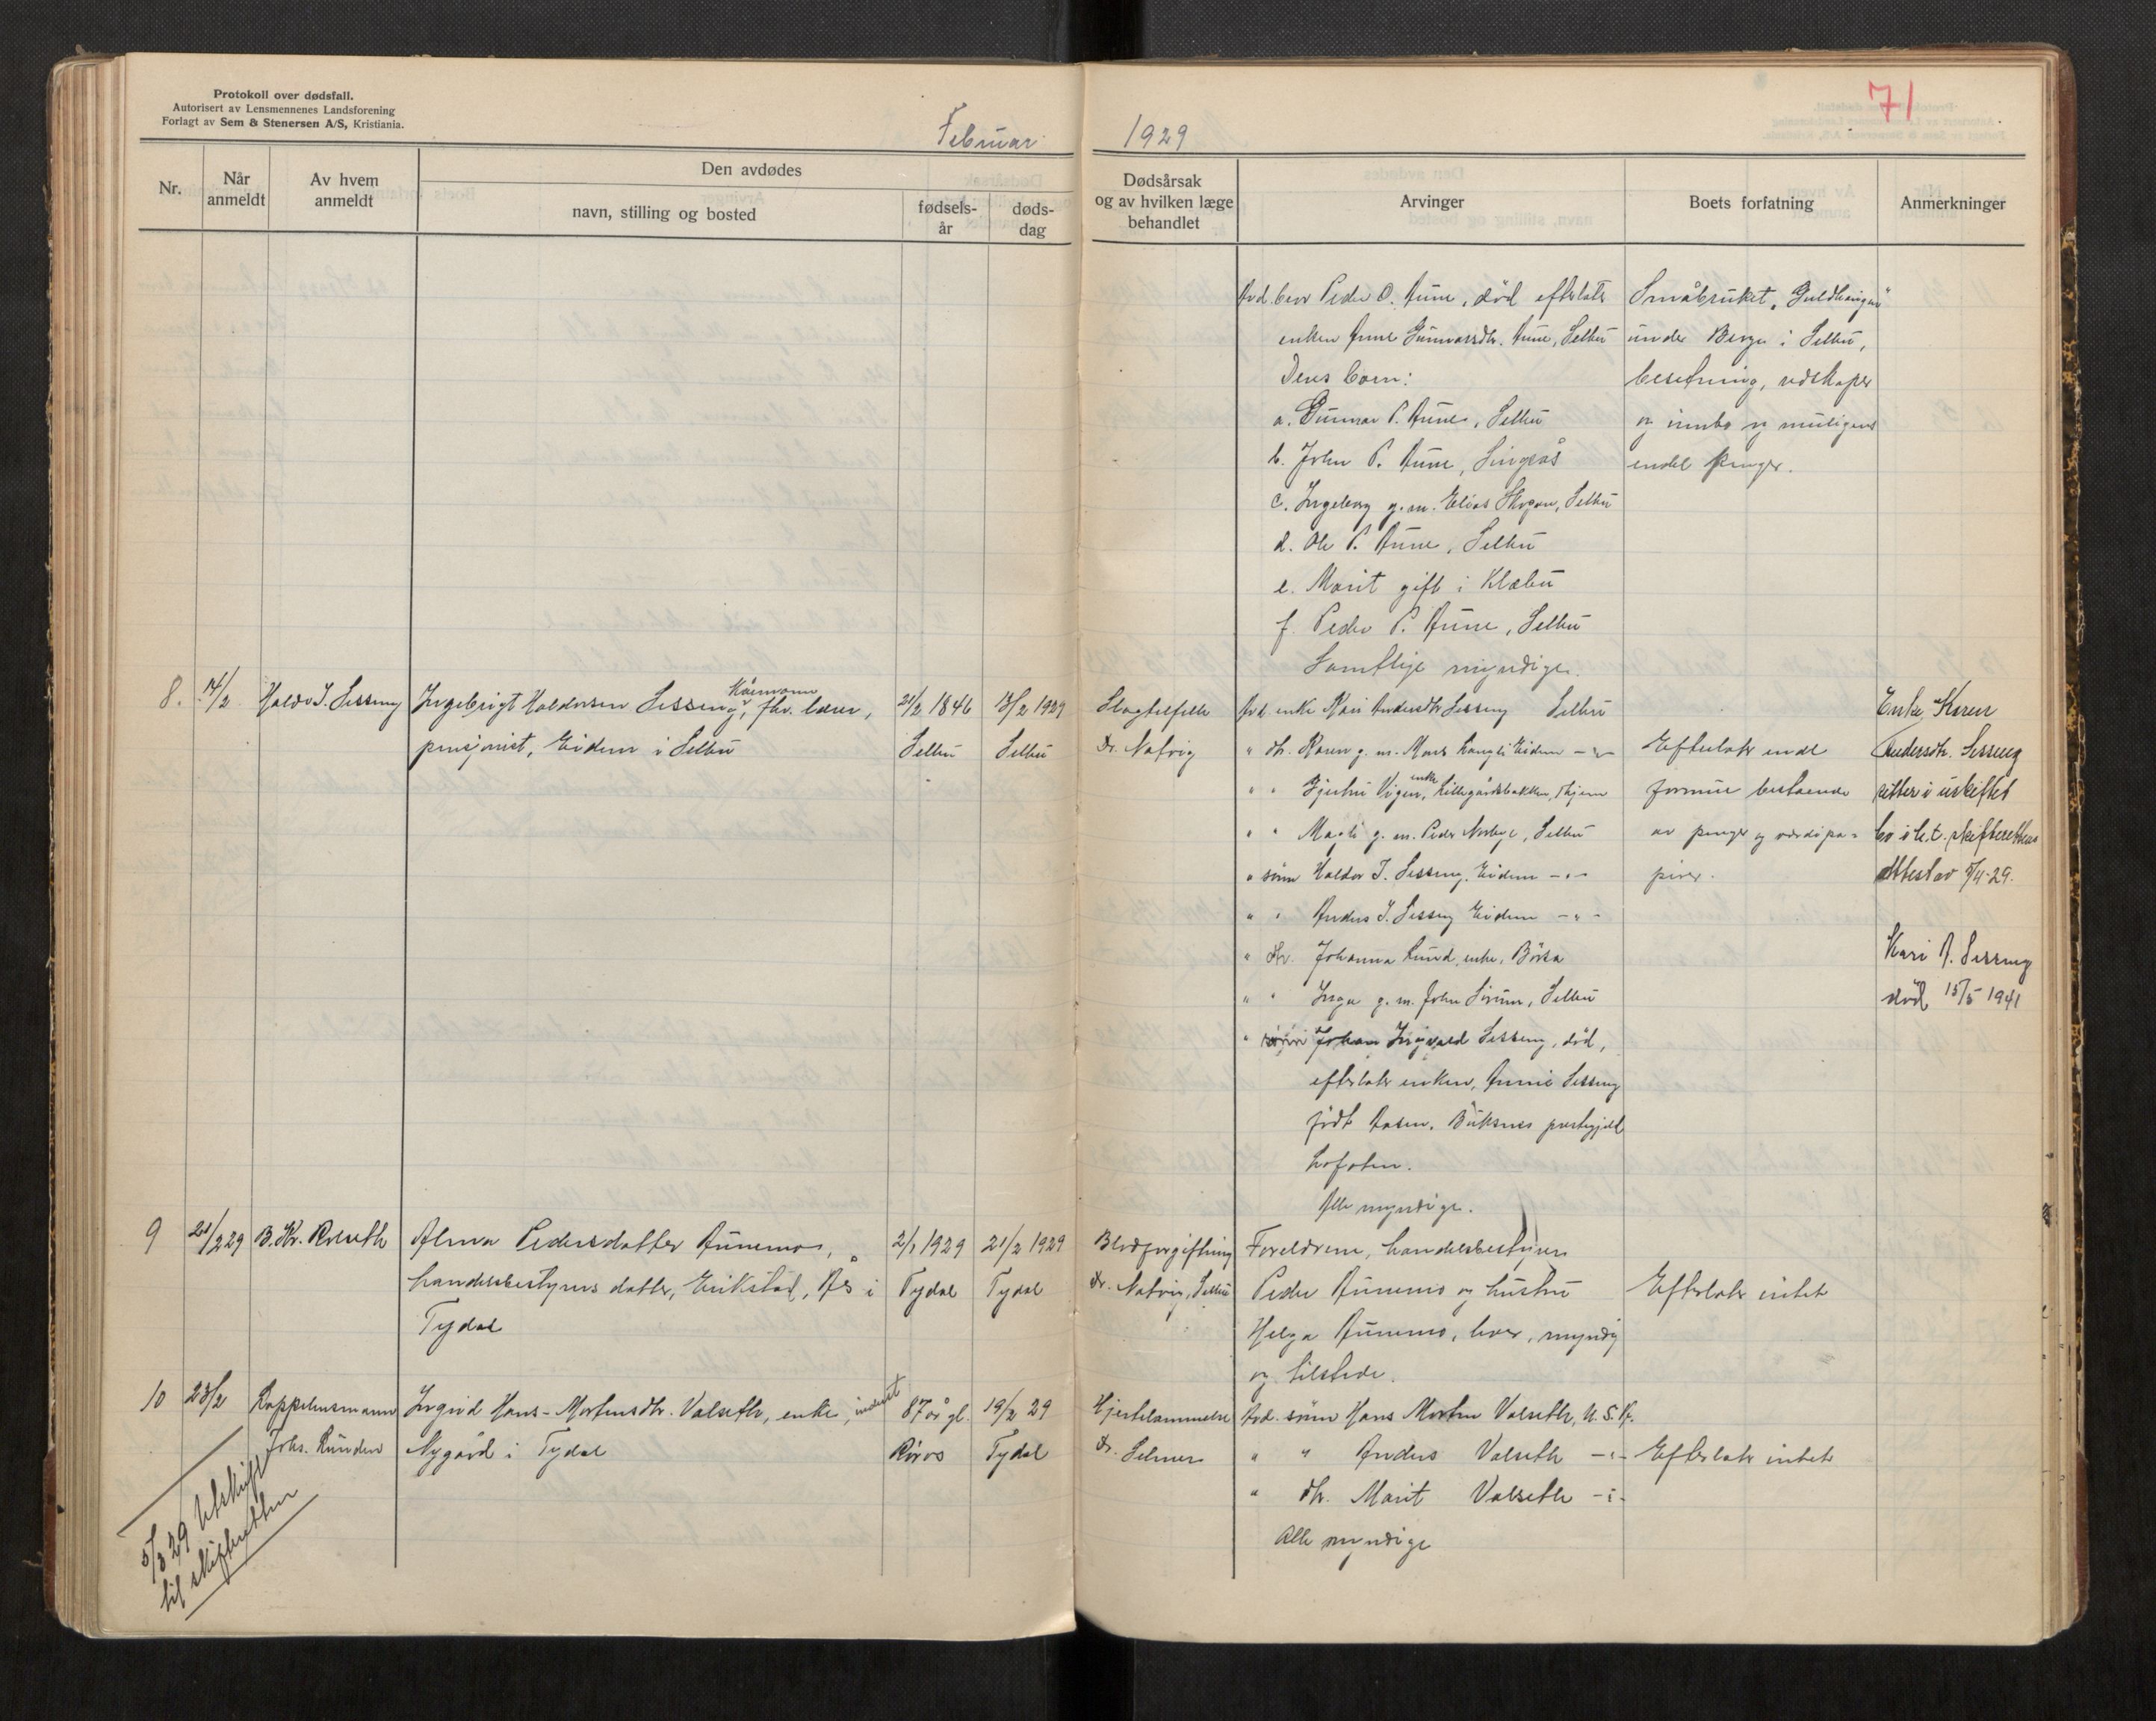 Protokoll over dødsfall.
Autorisert av Lensmennenes Landsforening
Forlagt av Sem & Stenersen A/S, Kristiania.
Februar 1929
71
Nr.
Når anmeldt
Av hvem anmeldt
Den avdødes
navn, stilling og bosted
fødsels-år
døds-dag
Dødsårsak og av hvilken læge behandlet
Arvinger
Boets forfatning
Anmerkninger
Avd. bror Peder O. Aune, død efterlater
enken Anne Gunnarsdtr. Aune, Selbu
Deres barn:
a. Gunnar P. Aune, Selbu
b. John P. Aune, Singsås
c. Ingeborg g.m. Elias Skogan, Selbu
d. Ole P. Aune, Selbu
e. Marit gift i Klæbu
f. Peder P. Aune, Selbu
Samtlige myndige.
Småbruket "Guldhaugen"
under Berge i Selbu,
besetning, redskaper
og innbo og muligens
endel penger.
8. 14/2 Haldo I. Sesseng
Ingebrigt Haldorsen Sesseng, Kårmann, fhv. lærer,
pensjonist, Eidem i Selbu
21/2 1846
Selbu
13/2 1929
Selbu
Slagtilfelle
Dr. Natvig
Avd. enke Kari Andersdtr Sesseng Selbu
" dtr. Karen g.m. Mons Langli Eidem - " -
" " Gjertru Vigen, enke Lillegårdsbakken, Thjem
" " Magli g.m. Peder Norbye, Selbu
" sønn Haldor I. Sesseng, Eidem - " -
" " Anders I. Sesseng Eidem - " -
" dtr. Johanna Lund, enke, Børsa
" " Inga g.m. John Sirum, Selbu
" sønn Johan Ingvald Sesseng, død,
efterlater enken, Annie Sesseng
født Aasen. Buksnes prestegjeld
Lofoten.
Alle myndige.
Efterlater endel
formue bestaaende
av penger og verdipa-
pirer.
Enke, Karen
Andersdtr. Sesseng
sitter i uskiftet
bo i h.t. skifterettens
attest av 5/4-29.
Kari A. Sesseng
død 15/5 1941
9 21/2 29 B. Kr. Rolseth
Alma Pedersdatter Aunemo,
handelsbestyrers datter, Erikstad, Ås i
Tydal
2/1 1929
Tydal
21/2 1929
Tydal
Blodforgiftning
Dr. Natvig, Selbu
Foreldrene, handelsbestyrer
Peder Aunemo og hustru
Helga Aunemo, lever, myndig
og tilstede.
Efterlater intet
10 23/2 Reppelensmann
Johs. Kunden
Ingrid Hans-Mortensdtr. Valseth, enke, inderst
Nygård i Tydal
87 år gl.
Røros
19/2 29
Tydal
Hjertelammelse
Dr. Selmer
Avd. sønn Hans Morten Valseth, U.S.A.
" " Anders Valseth - " -
" dtr. Marit Valseth - " -
Alle myndige
Efterlater intet
5/3 29 Utskrift
til skifteretten